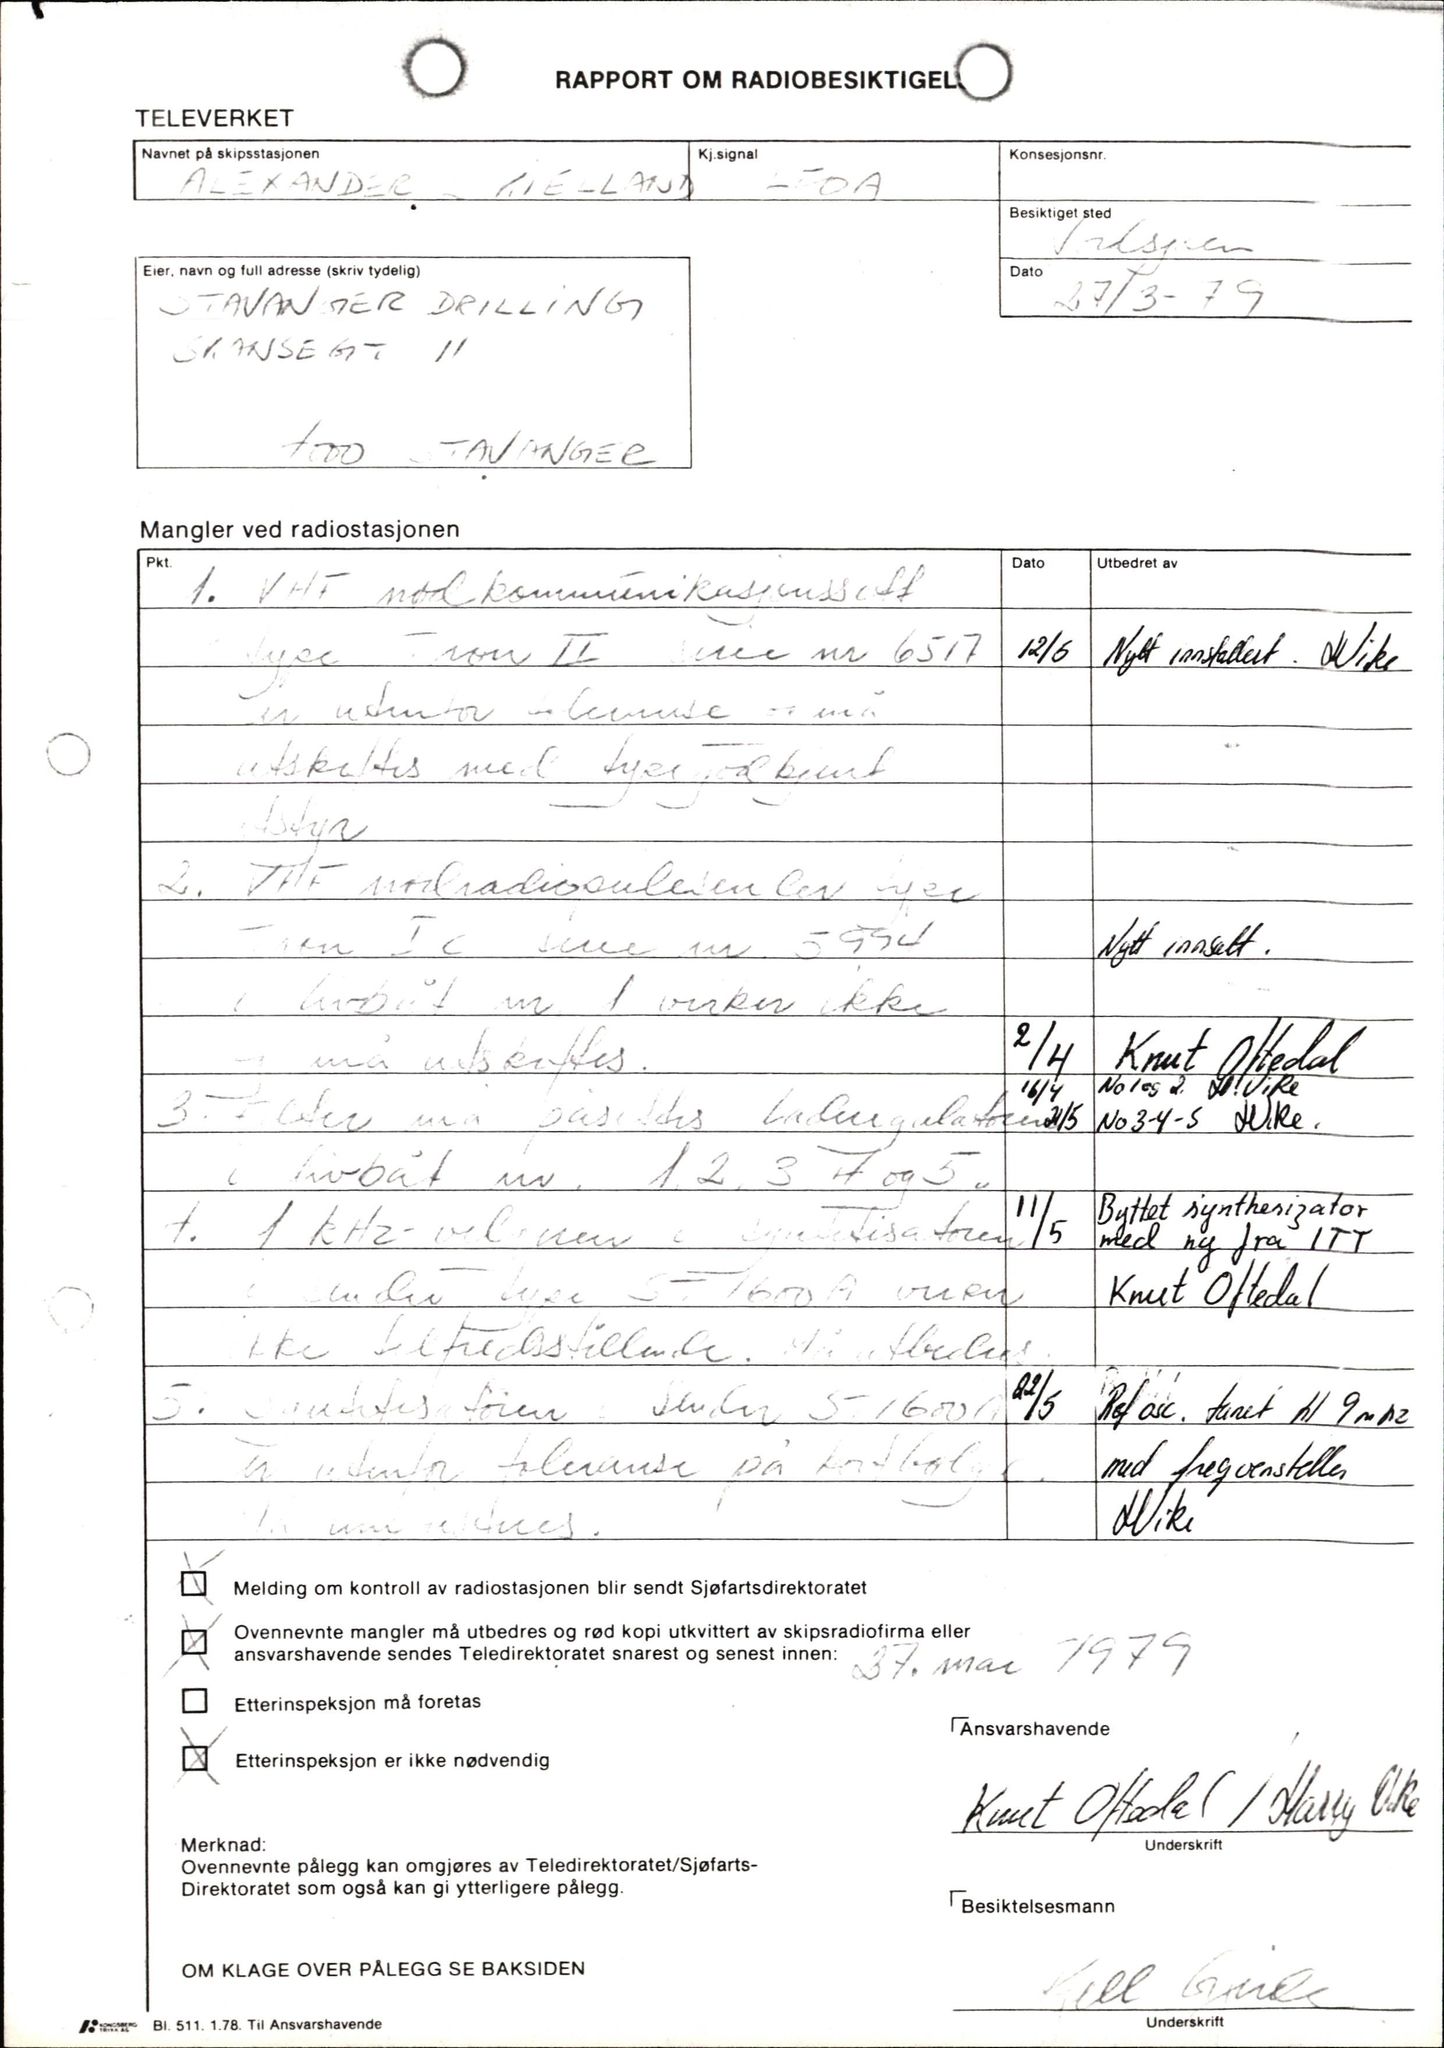 RAPPORT OM RADIOBESIKTIGEL
TELEVERKET
Navnet på skipsstasjonen
ALEXANDER KIELLAND
Kj.signal
Konsesjonsnr.
Besiktiget sted
Dato
27/3-79
Eier, navn og full adresse (skriv tydelig)
STAVANGER DRILLING
SKANSEGT 11
4000 STAVANGER
Mangler ved radiostasjonen
Pkt.
Dato
Utbedret av
1. VHF nødkommunikasjonssett
type Tron II serie nr 6517
12/6
Nytt innstallert. HVike
er utenfor toleranse og må
utskiftes med typegodkjent
utstyr
2. VHF nødradiopeilesender type
Tron I C serie nr. 5994
Nytt innsatt.
i livbåt nr 1 virker ikke
og må utskiftes.
2/4
Knut Oftedal
16/4
No 1 og 2. H.Vike
3. Filter må påsettes laderegulatoren
21/5
No 3-4-5 HVike.
i livbåt nr. 1, 2, 3 4 og 5.
11/5
Byttet synthesizator
4. 1 kHz i syntetisatoren
med ny fra ITT
i sender type ST 1600A virker
Knut Oftedal
ikke tilfredsstillende. Må utbedres.
5. Syntetisatoren i sender ST 1600A
22/5
Ref osc. tunet til 9 mhz
er utenfor toleranse på kortbølge.
med frequensteller
Må
HVike
Melding om kontroll av radiostasjonen blir sendt Sjøfartsdirektoratet
Ovennevnte mangler må utbedres og rød kopi utkvittert av skipsradiofirma eller
ansvarshavende sendes Teledirektoratet snarest og senest innen: 27. mai 1979
Etterinspeksjon må foretas
Etterinspeksjon er ikke nødvendig
Ansvarshavende
Knut Oftedal / Harry Vike
Underskrift
Merknad:
Ovennevnte pålegg kan omgjøres av Teledirektoratet/Sjøfarts-
Direktoratet som også kan gi ytterligere pålegg.
Besiktelsesmann
OM KLAGE OVER PÅLEGG SE BAKSIDEN
Underskrift
KONGSBERG
TRYKK AS
Bl. 511. 1.78. Til Ansvarshavende